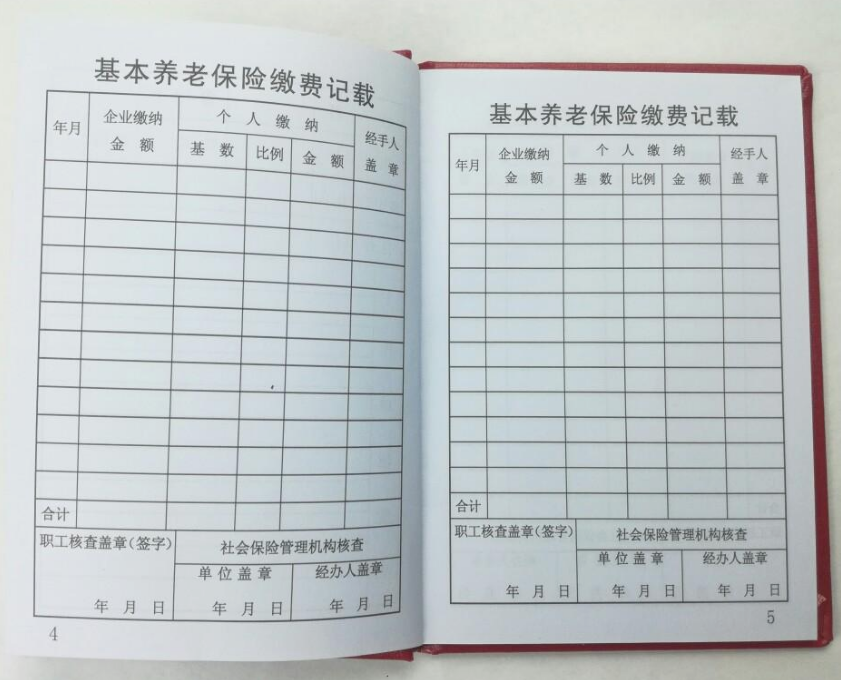 基本养老保险缴费记载
年月 企业缴纳金额 个人缴纳 经手人盖章
基数 比例 金额
合计
职工核查盖章(签字) 社会保险管理机构核查
单位盖章 经办人盖章
年月日 年月日 年月日
4
基本养老保险缴费记载
年月 企业缴纳金额 个人缴纳 经手人盖章
基数 比例 金额
合计
职工核查盖章(签字) 社会保险管理机构核查
单位盖章 经办人盖章
年月日 年月日 年月日
5